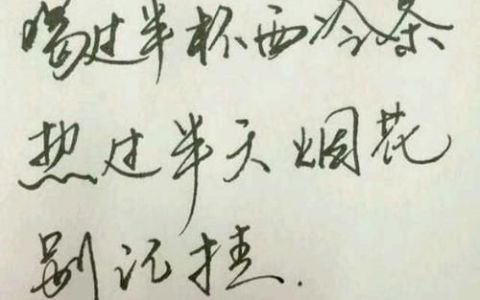 喝过半杯西冷茶
热过半天烟花
别记挂.